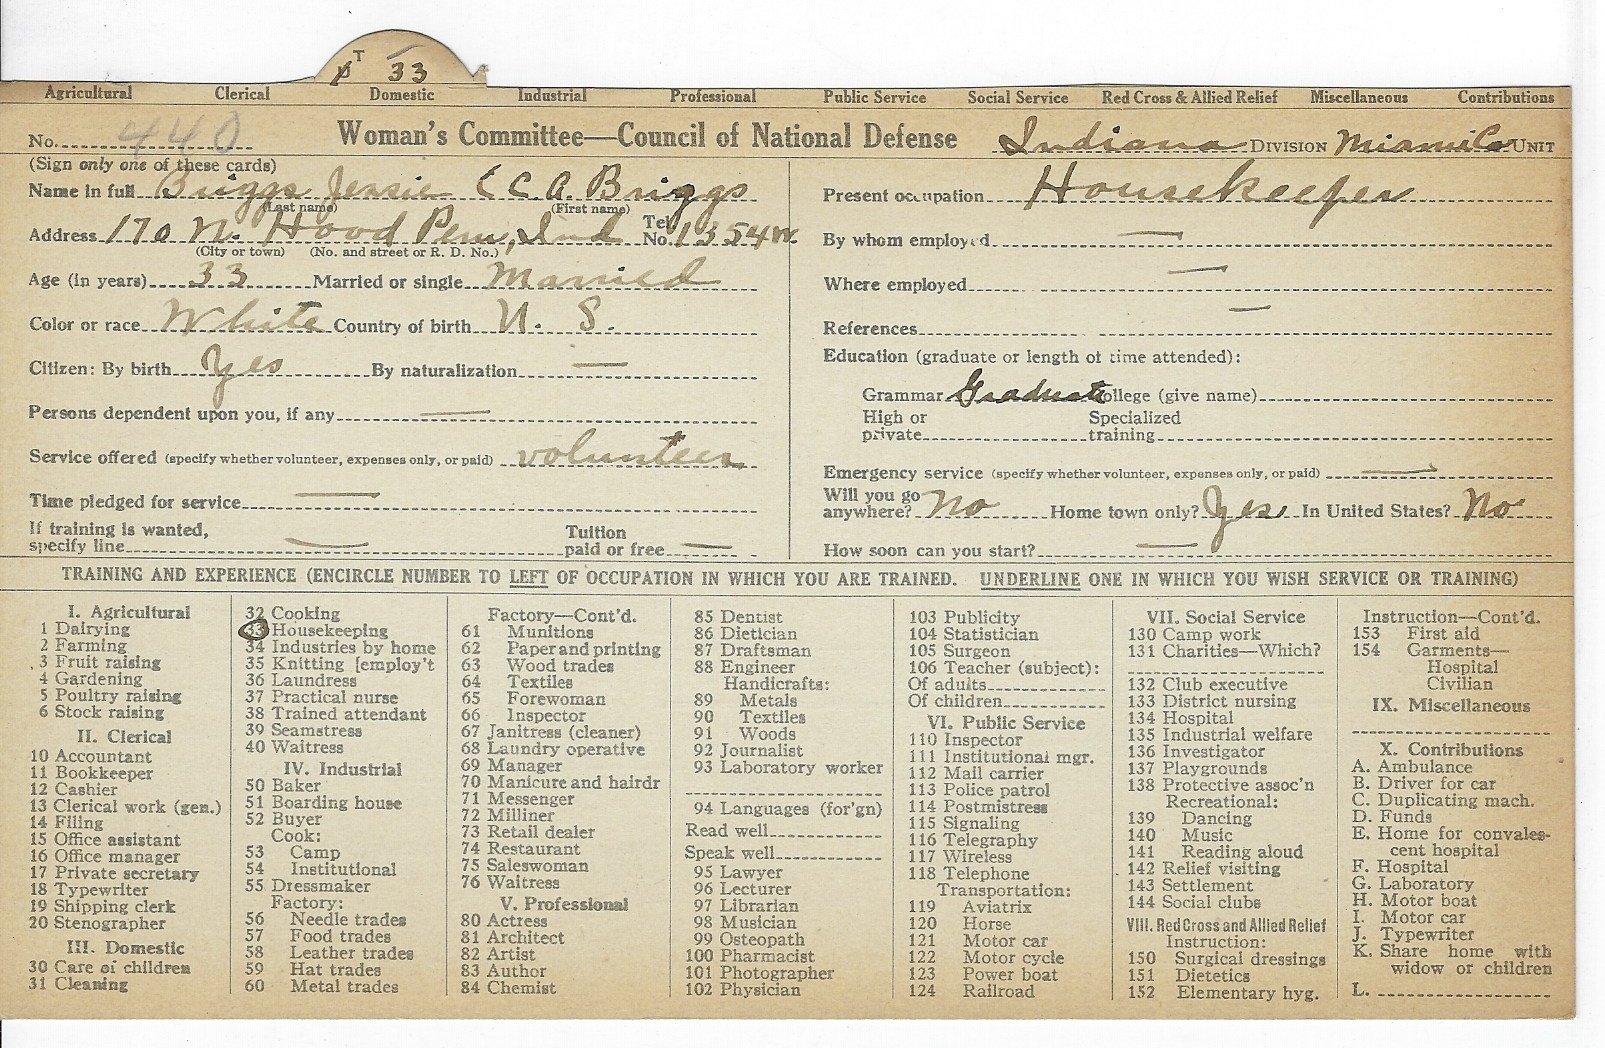 T 33
Agricultural Clerical Domestic Industrial Professional Public Service Social Service Red Cross & Allied Relief Miscellaneous Contributions
No. 440 Woman's Committee—Council of National Defense Indiana DIVISION Miami Co UNIT
(Sign only one of these cards)
Name in full Briggs Jessie (C. A. Briggs
(Last name) (First name)
Address 170 N. Hood Peru, Ind Tel. No. 1354W.
(City or town) (No. and street or R. D. No.)
Age (in years) 33 Married or single Married
Color or race White Country of birth U. S.
Citizen: By birth Yes By naturalization —
Persons dependent upon you, if any —
Service offered (specify whether volunteer, expenses only, or paid) volunteer
Time pledged for service —
If training is wanted,
specify line — Tuition paid or free —
Present occupation Housekeeper
By whom employed —
Where employed —
References —
Education (graduate or length of time attended):
Grammar Graduate College (give name)
High or private Specialized training
Emergency service (specify whether volunteer, expenses only, or paid) —
Will you go anywhere? No Home town only? Yes. In United States? No
How soon can you start? —
TRAINING AND EXPERIENCE (ENCIRCLE NUMBER TO LEFT OF OCCUPATION IN WHICH YOU ARE TRAINED. UNDERLINE ONE IN WHICH YOU WISH SERVICE OR TRAINING)
I. Agricultural
1 Dairying
2 Farming
3 Fruit raising
4 Gardening
5 Poultry raising
6 Stock raising
II. Clerical
10 Accountant
11 Bookkeeper
12 Cashier
13 Clerical work (gen.)
14 Filing
15 Office assistant
16 Office manager
17 Private secretary
18 Typewriter
19 Shipping clerk
20 Stenographer
III. Domestic
30 Care of children
31 Cleaning
32 Cooking
33 Housekeeping
34 Industries by home
35 Knitting [employ't
36 Laundress
37 Practical nurse
38 Trained attendant
39 Seamstress
40 Waitress
IV. Industrial
50 Baker
51 Boarding house
52 Buyer
Cook:
53 Camp
54 Institutional
55 Dressmaker
Factory:
56 Needle trades
57 Food trades
58 Leather trades
59 Hat trades
60 Metal trades
Factory—Cont'd.
61 Munitions
62 Paper and printing
63 Wood trades
64 Textiles
65 Forewoman
66 Inspector
67 Janitress (cleaner)
68 Laundry operative
69 Manager
70 Manicure and hairdr
71 Messenger
72 Milliner
73 Retail dealer
74 Restaurant
75 Saleswoman
76 Waitress
V. Professional
80 Actress
81 Architect
82 Artist
83 Author
84 Chemist
85 Dentist
86 Dietician
87 Draftsman
88 Engineer
Handicrafts:
89 Metals
90 Textiles
91 Woods
92 Journalist
93 Laboratory worker
94 Languages (for'gn)
Read well
Speak well
95 Lawyer
96 Lecturer
97 Librarian
98 Musician
99 Osteopath
100 Pharmacist
101 Photographer
102 Physician
103 Publicity
104 Statistician
105 Surgeon
106 Teacher (subject):
Of adults
Of children
VI. Public Service
110 Inspector
111 Institutional mgr.
112 Mail carrier
113 Police patrol
114 Postmistress
115 Signaling
116 Telegraphy
117 Wireless
118 Telephone
Transportation:
119 Aviatrix
120 Horse
121 Motor car
122 Motor cycle
123 Power boat
124 Railroad
VII. Social Service
130 Camp work
131 Charities—Which?
132 Club executive
133 District nursing
134 Hospital
135 Industrial welfare
136 Investigator
137 Playgrounds
138 Protective assoc'n
Recreational:
139 Dancing
140 Music
141 Reading aloud
142 Relief visiting
143 Settlement
144 Social clubs
VIII. Red Cross and Allied Relief
Instruction:
150 Surgical dressings
151 Dietetics
152 Elementary hyg.
Instruction—Cont'd.
153 First aid
154 Garments—
Hospital
Civilian
IX. Miscellaneous
X. Contributions
A. Ambulance
B. Driver for car
C. Duplicating mach.
D. Funds
E. Home for convales-
cent hospital
F. Hospital
G. Laboratory
H. Motor boat
I. Motor car
J. Typewriter
K. Share home with
widow or children
L.